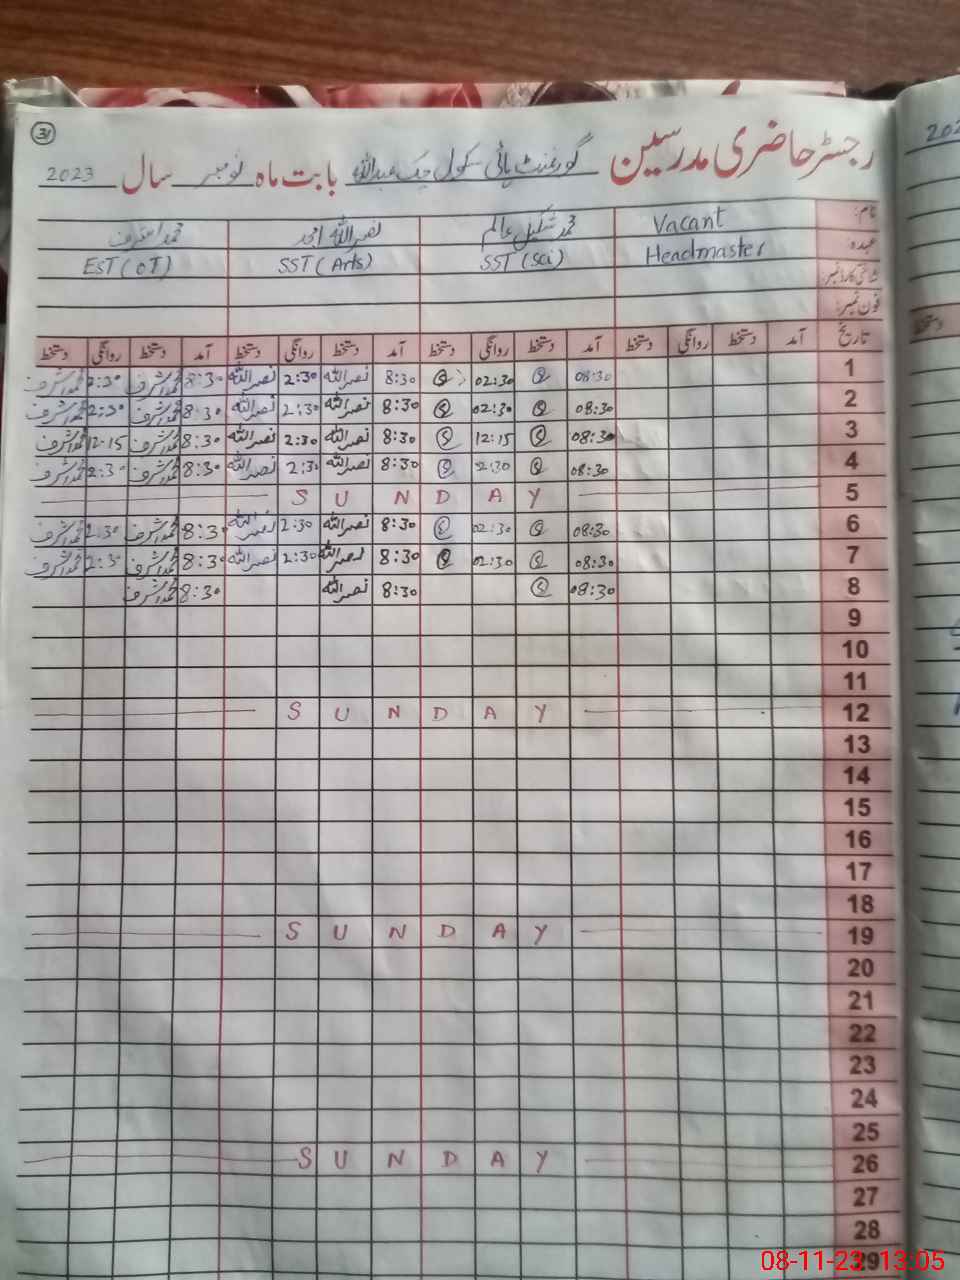 31
رجسٹر حاضری مدرسین گورنمنٹ ہائی سکول چک عبداللہ بابت ماہ نومبر سال 2023
نام: Vacant محمد شکیل عالم نصراللہ امجد محمد اشرف
عہدہ: Headmaster SST (Sci) SST (Arts) EST (OT)
شناختی کارڈ نمبر:
فون نمبر:
تاریخ آمد دستخط روانگی دستخط آمد دستخط روانگی دستخط آمد دستخط روانگی دستخط آمد دستخط روانگی دستخط
1 08:30 02:30 8:30 نصراللہ 2:30 نصراللہ 8:30 محمد اشرف 2:30 محمد اشرف
2 08:30 02:30 8:30 نصراللہ 2:30 نصراللہ 8:30 محمد اشرف 2:30 محمد اشرف
3 08:30 12:15 8:30 نصراللہ 2:30 نصراللہ 8:30 محمد اشرف 12:15 محمد اشرف
4 08:30 2:30 8:30 نصراللہ 2:30 نصراللہ 8:30 محمد اشرف 2:30 محمد اشرف
5 SUNDAY
6 08:30 02:30 8:30 نصراللہ 2:30 نصراللہ 8:30 محمد اشرف 2:30 محمد اشرف
7 08:30 02:30 8:30 نصراللہ 2:30 نصراللہ 8:30 محمد اشرف 2:30 محمد اشرف
8 08:30 8:30 نصراللہ 8:30 محمد اشرف
9
10
11
12 SUNDAY
13
14
15
16
17
18
19 SUNDAY
20
21
22
23
24
25
26 SUNDAY
27
28
29
08-11-23 13:05